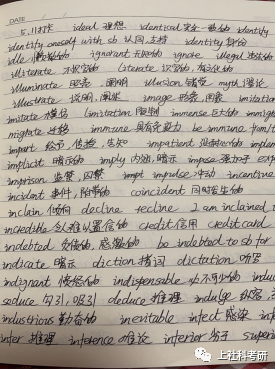 DATE
5.11打卡 ideal 理想 identical 完全一致的 identity
identify oneself with sb 认同,支持 identity 身份
idle 的 ignorant 无知的 ignore illegal
illiterate 不识字的 literate 识字的,有文化的
illuminate 照亮,阐明 illusion 错觉 myth 谬论
illustrate 说明,阐述 image 形象,图象 imitation
imitate 模仿 limitation 限制 immense 巨大的
migrate 迁移 immune 具有免疫力 be immune
impart 给予,传授,告知 impatient
implicit 暗示的 imply 内涵,暗示 impose 强加于
imprison 监禁,囚禁 impulse 冲动 incentive
incident 事件,附带的 coincident 同时发生的
incline 倾向 decline recline I am inclined
incredible 令人难以置信的 credit 信用 credit card
indebted 负债的,感激的 be indebted to sb for
indicate 暗示 diction 措词 dictation 听写
indignant 愤怒的 indispensable 必不可少的
seduce 勾引,吸引 deduce 推理 indulge 纵容
industrious 勤奋的 inevitable infect 感染
infer 推理 inference 推论 inferior 劣于
上社科考研